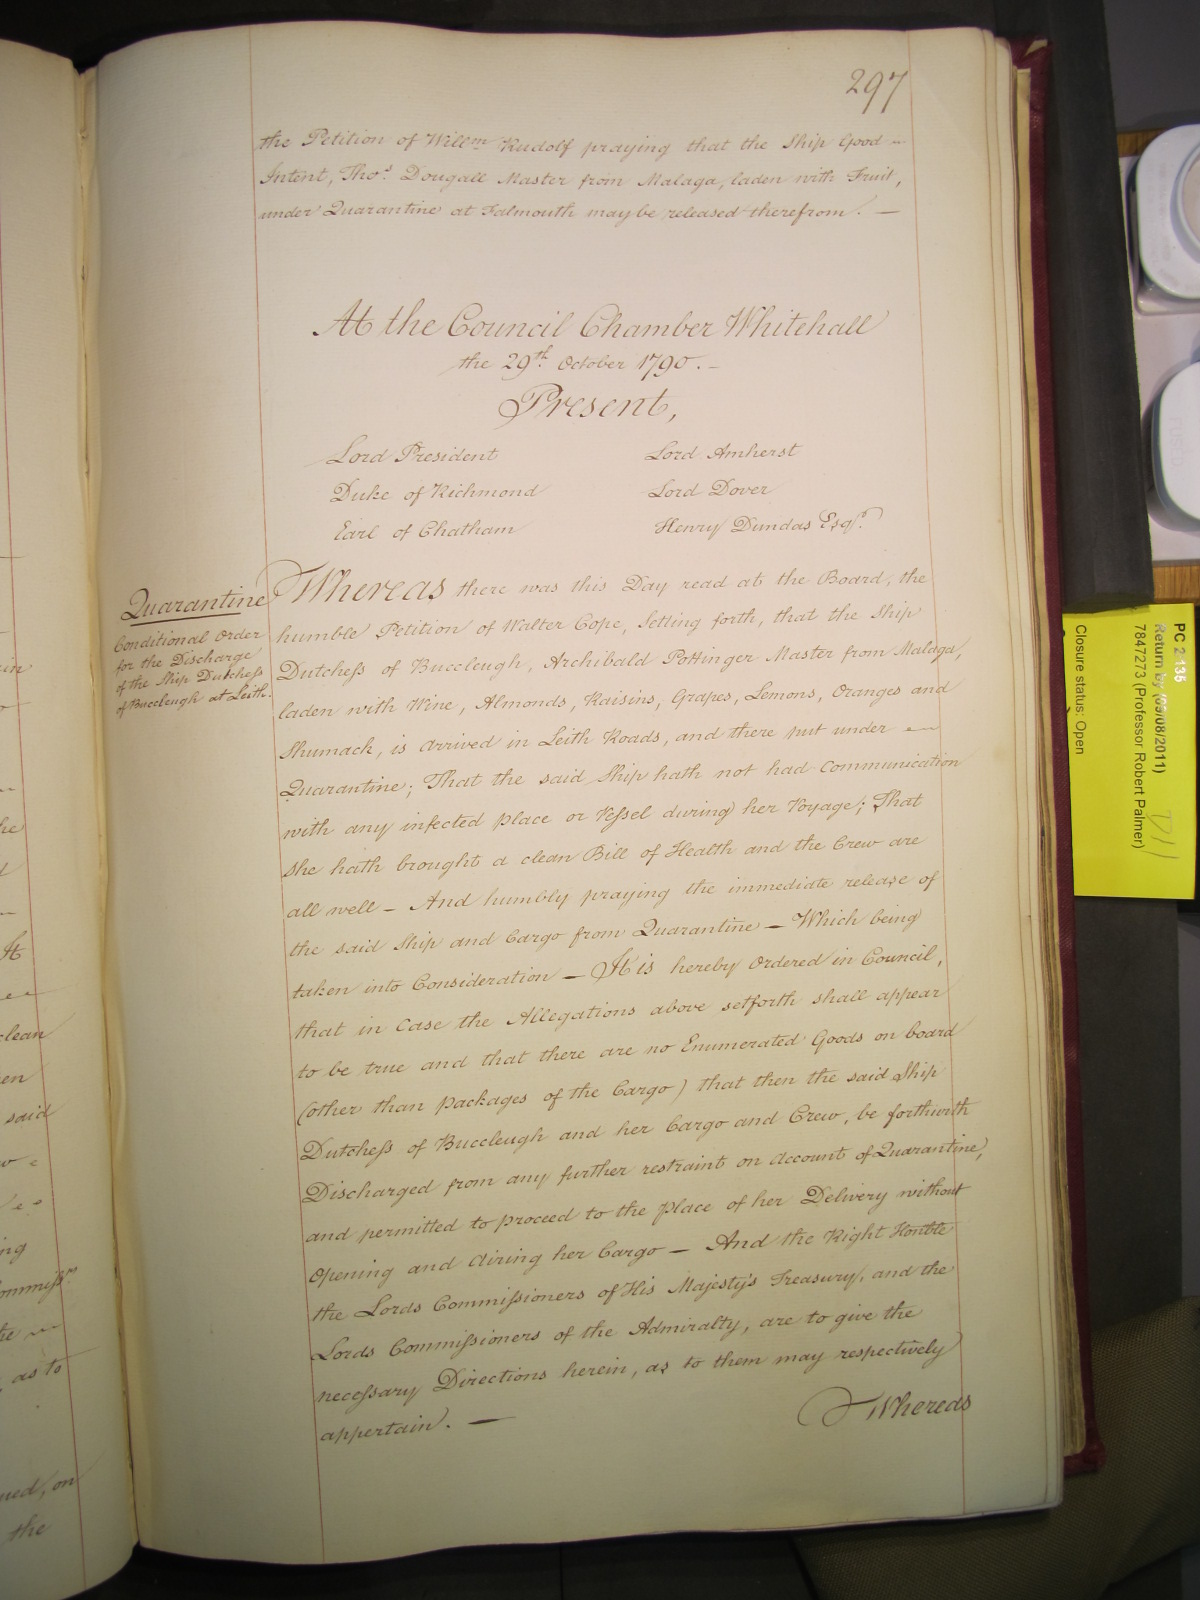 297
the Petition of Will.m Rudolf praying that the Ship Good
Intent, Tho.s Dougall Master from Malaga, laden with Fruit,
under Quarantine at Falmouth may be released therefrom. —
At the Council Chamber Whitehall
the 29.th October 1790. —
Present,
Lord President
Lord Amherst
Duke of Richmond
Lord Dover
Earl of Chatham
Henry Dundas Esq.r
Quarantine
Conditional Order
for the Discharge
of the Ship Dutchess
of Buccleugh at Leith.
Whereas there was this Day read at the Board, the
humble Petition of Walter Cope, Setting forth, that the Ship
Dutchess of Buccleugh, Archibald Pottinger Master from Malaga,
laden with Wine, Almonds, Raisins, Grapes, Lemons, Oranges and
Shumack, is arrived in Leith Roads, and there put under
Quarantine; That the said Ship hath not had Communication
with any infected Place or Vessel during her Voyage; That
she hath brought a clean Bill of Health and the Crew are
all well — And humbly praying the immediate release of
the said Ship and Cargo from Quarantine — Which being
taken into Consideration — It is hereby Ordered in Council,
that in Case the Allegations above setforth shall appear
to be true and that there are no Enumerated Goods on board
(other than Packages of the Cargo) that then the said Ship
Dutchess of Buccleugh and her Cargo and Crew, be forthwith
Discharged from any further restraint on Account of Quarantine,
and permitted to proceed to the Place of her Delivery without
Opening and Airing her Cargo — And the Right Honble
the Lords Commissioners of His Majesty's Treasury, and the
Lords Commissioners of the Admiralty, are to give the
necessary Directions herein, as to them may respectively
appertain. —
Whereas
PC 2 135
Return by (09/08/2011)
7847273 (Professor Robert Palmer)
Closure status: Open
It
clean
said
as to
on
the